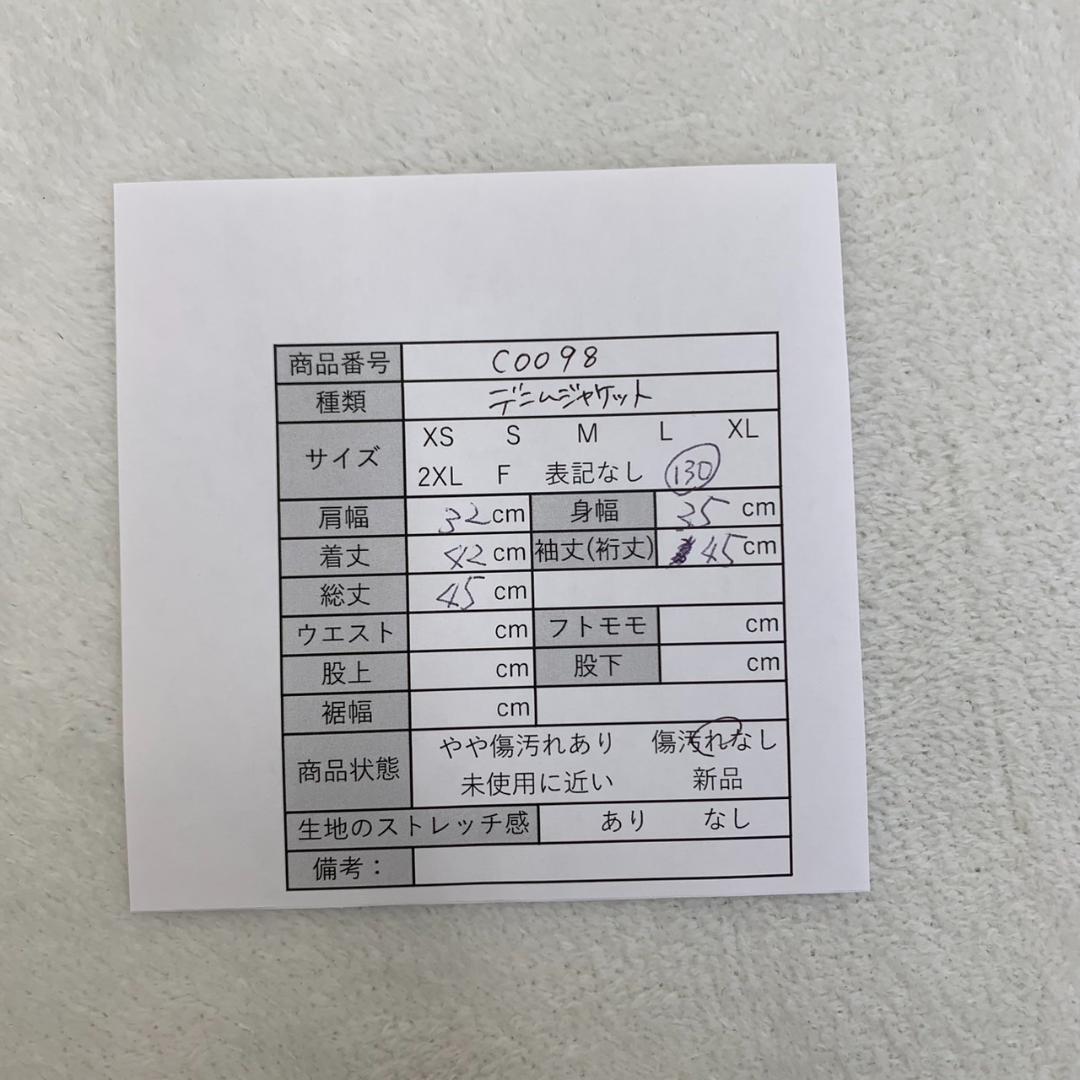 商品番号 C0098
種類 デニムジャケット
サイズ XS S M L XL
2XL F 表記なし 130
肩幅 32cm 身幅 35cm
着丈 42cm 袖丈(裄丈) 45cm
総丈 45cm
ウエスト cm フトモモ cm
股上 cm 股下 cm
裾幅 cm
商品状態 やや傷汚れあり 傷汚れなし
未使用に近い 新品
生地のストレッチ感 あり なし
備考：